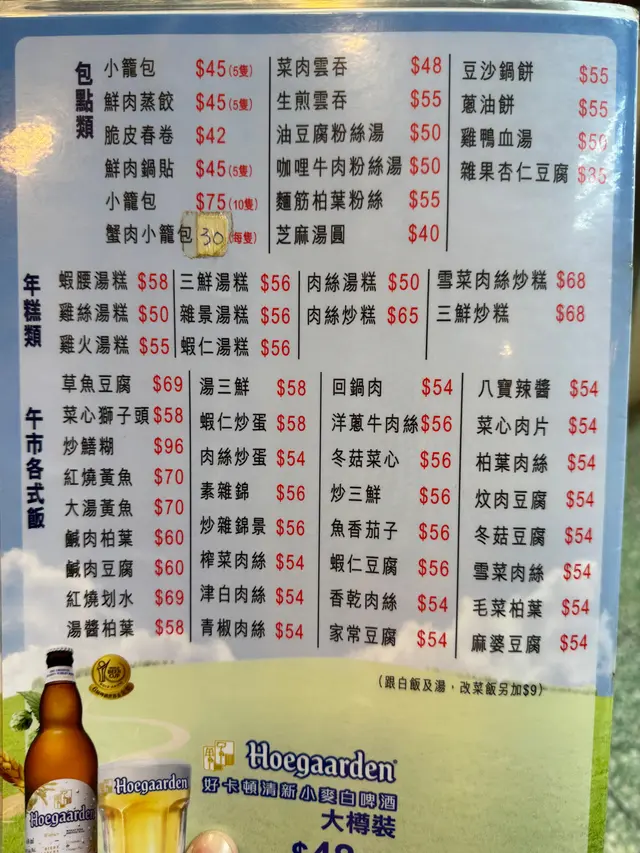 包點類
小籠包 $45(5隻)
鮮肉蒸餃 $45(5隻)
脆皮春卷 $42
鮮肉鍋貼 $45(5隻)
小籠包 $75(10隻)
蟹肉小籠包 30 (每隻)
菜肉雲吞 $48
生煎雲吞 $55
油豆腐粉絲湯 $50
咖哩牛肉粉絲湯 $50
麵筋柏葉粉絲 $55
芝麻湯圓 $40
豆沙鍋餅 $55
蔥油餅 $55
雞鴨血湯 $50
雜果杏仁豆腐 $35
年糕類
蝦腰湯糕 $58
雞絲湯糕 $50
雞火湯糕 $55
三鮮湯糕 $56
雜景湯糕 $56
蝦仁湯糕 $56
肉絲湯糕 $50
肉絲炒糕 $65
雪菜肉絲炒糕 $68
三鮮炒糕 $68
午市各式飯
草魚豆腐 $69
菜心獅子頭 $58
炒鱔糊 $96
紅燒黃魚 $70
大湯黃魚 $70
鹹肉柏葉 $60
鹹肉豆腐 $60
紅燒划水 $69
湯醬柏葉 $58
湯三鮮 $58
蝦仁炒蛋 $58
肉絲炒蛋 $54
素雜錦 $56
炒雜錦景 $56
榨菜肉絲 $54
津白肉絲 $54
青椒肉絲 $54
回鍋肉 $54
洋蔥牛肉絲 $56
冬菇菜心 $56
炒三鮮 $56
魚香茄子 $56
蝦仁豆腐 $56
香乾肉絲 $54
家常豆腐 $54
八寶辣醬 $54
菜心肉片 $54
柏葉肉絲 $54
炆肉豆腐 $54
冬菇豆腐 $54
雪菜肉絲 $54
毛菜柏葉 $54
麻婆豆腐 $54
(跟白飯及湯，改菜飯另加$9)
Hoegaarden
好卡頓清新小麥白啤酒
大樽裝
$48
Hoegaarden
Hoegaarden